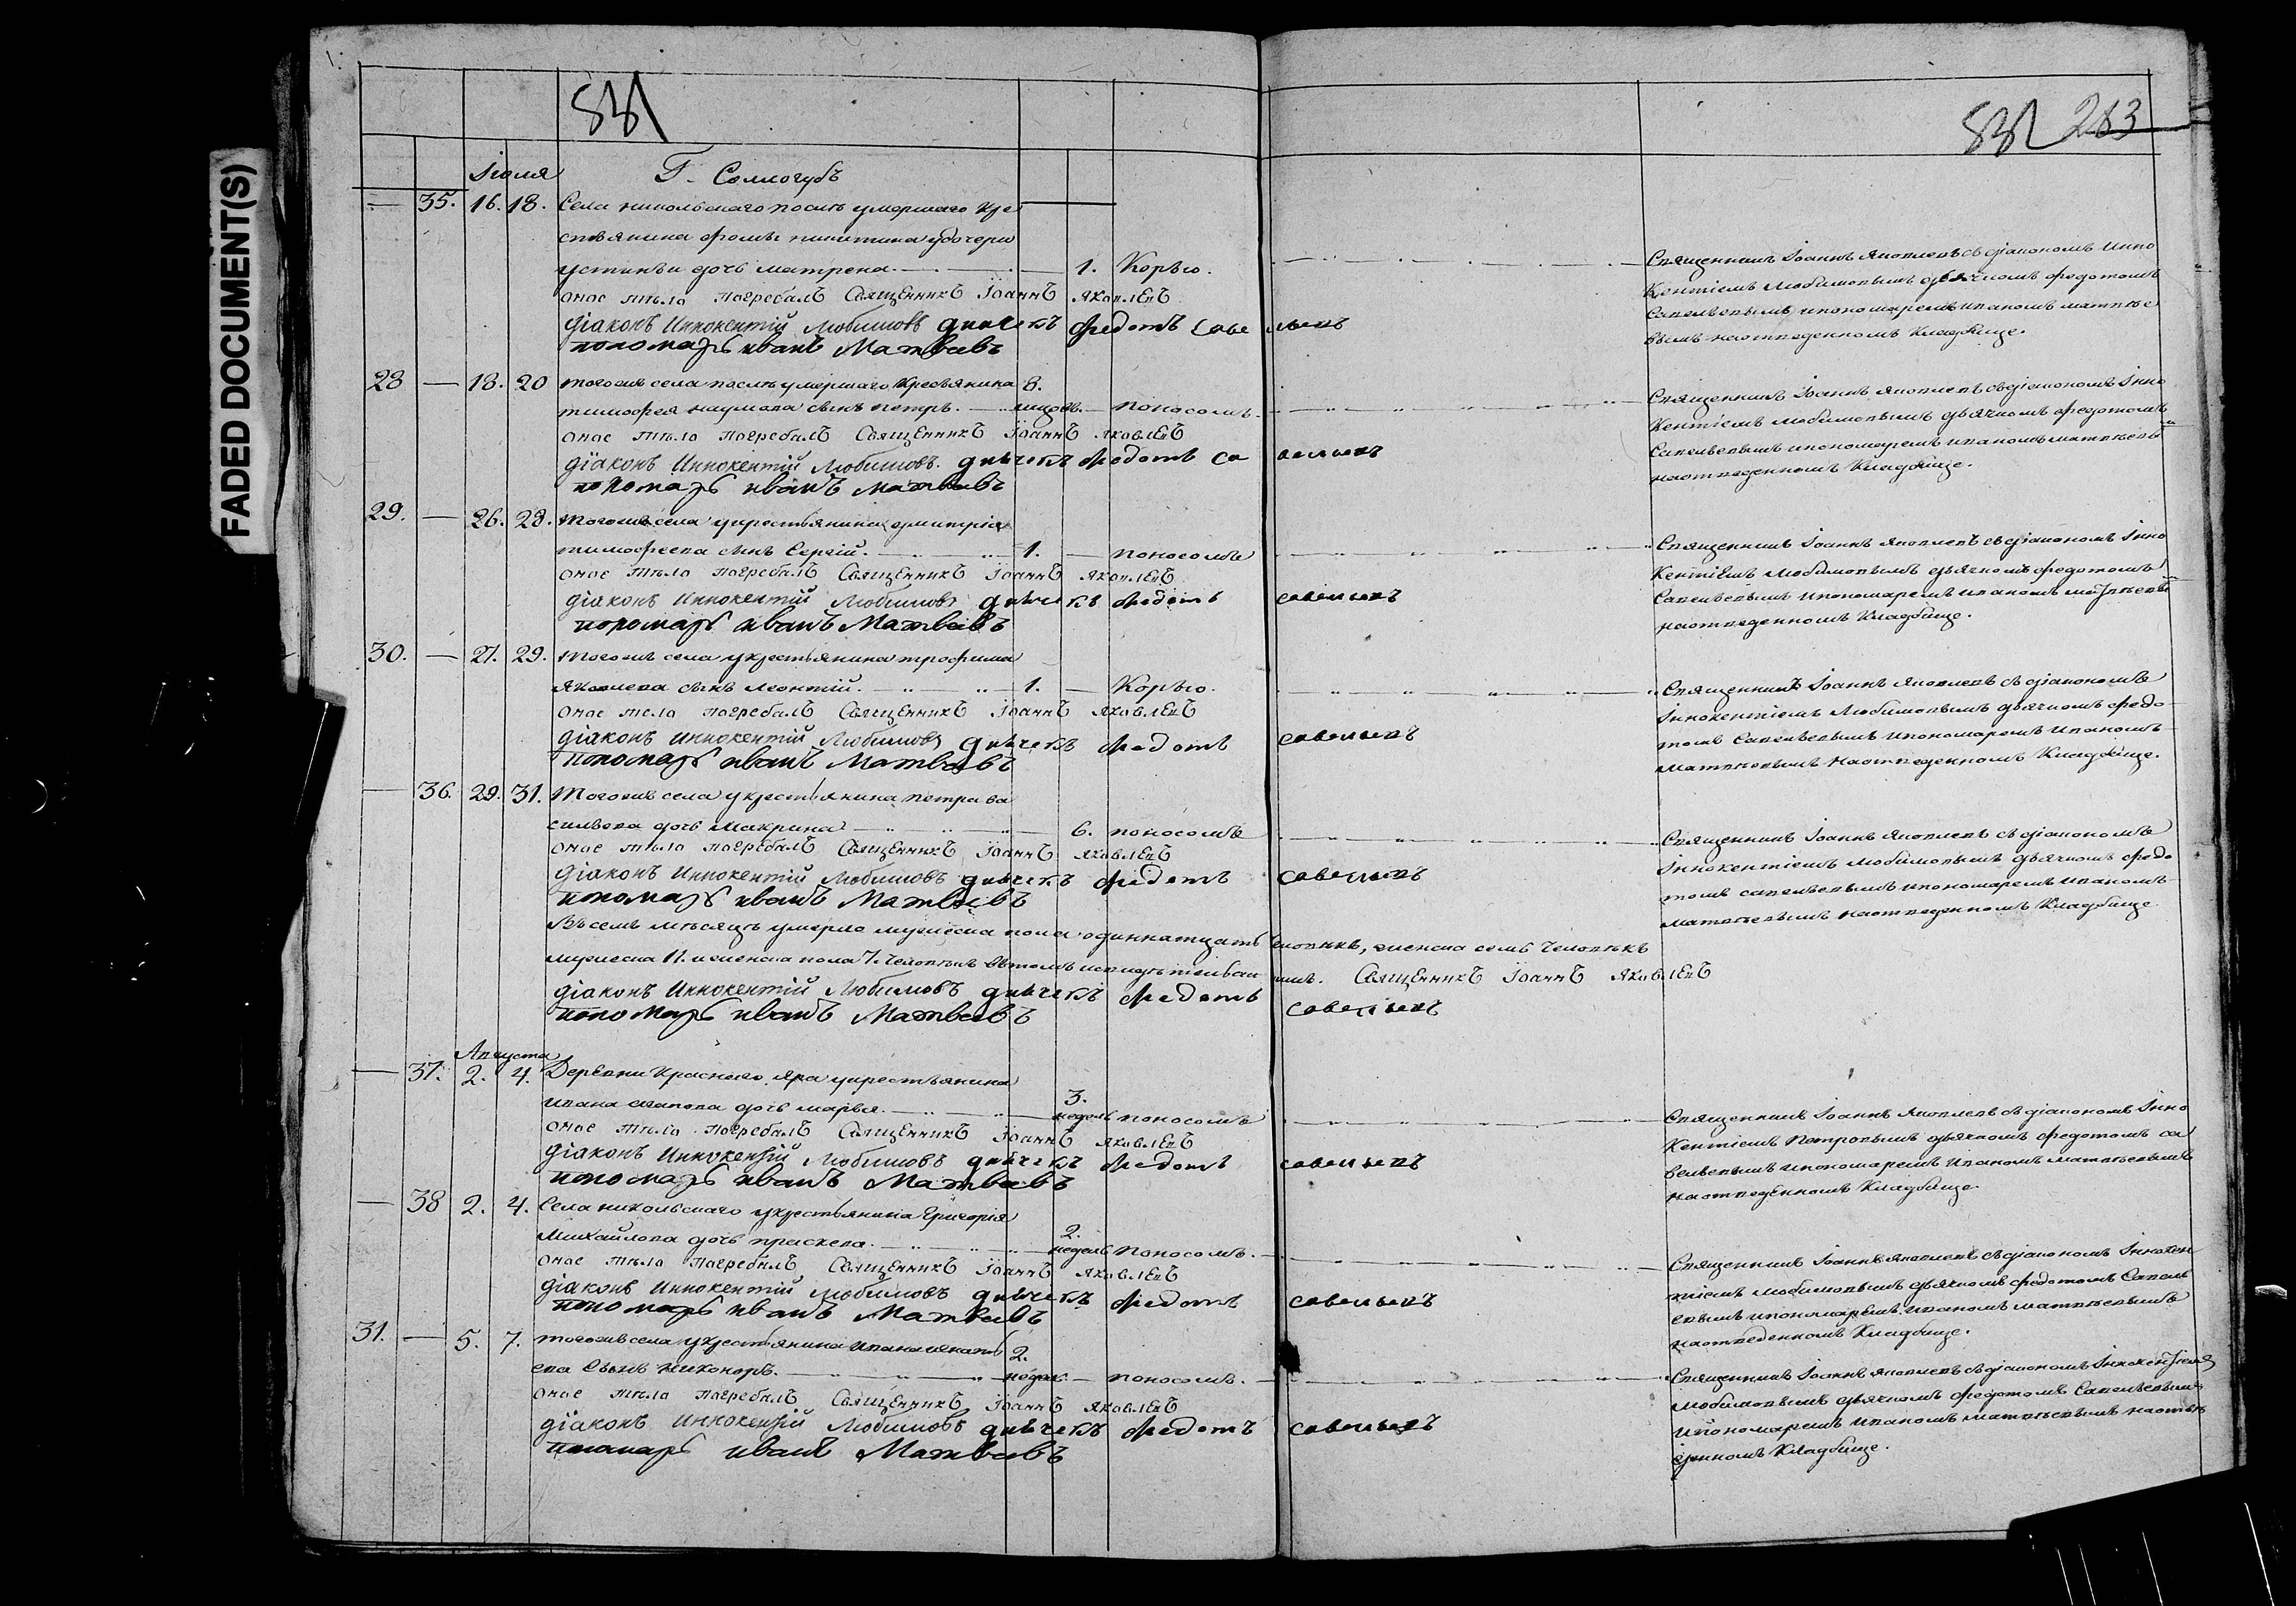 FADED DOCUMENT(S)
831
832 263
Iюля
Г. Соллогубъ
— 35. 16. 18. Села никольскаго послѣ умершаго кре
стьянина фомы никитина удочери
устиньи дочь матрена. — 1. Корью.
оное тѣло погребалъ Священникъ Iоаннъ Яковлевъ
дiаконъ Иннокентiй Любимовъ дьячекъ Федотъ Саве льевъ
пономарь иванъ Матвѣевъ
Священникъ Iоаннъ яковлевъ съ дiакономъ инно
Кентiемъ любимовымъ дьячкомъ федотомъ
савельевымъ ипономаремъ иваномъ матвѣе
вымъ наотведенномъ Кладбище.
28 — 18. 20 тогожъ села послѣ умершаго Кресьянина 8.
тимофея наумова сынъ петръ. — мѣсяц. — поносомъ.
оное тѣло погребалъ Священникъ Iоаннъ Яковлевъ
дiаконъ Иннокентiй Любимовъ. дьячекъ Федотъ са вельевъ
пономарь иванъ Матвѣевъ
Священникъ Iоаннъ яковлевъ съдiакономъ Iнно
Кентiемъ любимовымъ дьячкомъ федотомъ
Савельевымъ ипономаремъ иваномъ матвѣевы
наотведенномъ Кладбище.
29. — 26. 28. тогожъ села укрестьянина дмитрiя
тимофеева сынъ Сергiй. — 1. — поносомъ
оное тѣло погребалъ Священникъ Iоаннъ Яковлевъ
дiаконъ Иннокентiй Любимовъ дьячекъ Федотъ савельевъ
пономарь иванъ Матвѣевъ
Священникъ Iоаннъ яковлевъ съдiакономъ Iнно
Кентiемъ любимовымъ дьячкомъ федотомъ
Савельевымъ ипономаремъ иваномъ матвѣевы
наотведенномъ Кладбище.
30. — 27. 29. тогожъ села укрестьянина трофима
яковлева сынъ леонтiй. — 1. — Корью.
оное тело погребалъ Священникъ Iоаннъ Яковлевъ
дiаконъ Иннокентiй Любимовъ дьячекъ Федотъ савельевъ
пономарь иванъ Матвѣевъ
Священникъ Iоаннъ яковлевъ съ дiакономъ
Iннокентiемъ Любимовымъ дьячкомъ федо
томъ Савельевымъ ипономаремъ иваномъ
матвѣевымъ наотведенномъ Кладбище.
— 36. 29. 31. тогожъ села укрестьянина петра ва
сильева дочь Макрина — 6. поносомъ
оное тѣло погребалъ Священникъ Iоаннъ Яковлевъ
дiаконъ Иннокентiй Любимовъ дьячекъ Федотъ савельевъ
пономарь иванъ Матвѣевъ
Священникъ Iоаннъ яковлевъ съ дiакономъ
Iннокентiемъ любимовымъ дьячкомъ федо
томъ савельевымъ ипономаремъ иваномъ
матвѣевымъ наотведенномъ Кладбище.
Въ семъ мѣсяцѣ умерло мужеска пола одиннатцать человѣкъ, женска семь человѣкъ
мужеска 11. и женска пола 7. человѣкъ въ томъ исвидѣтельству емъ. Священникъ Iоаннъ Яковлевъ
дiаконъ Иннокентiй Любимовъ дьячекъ Федотъ савельевъ
пономарь иванъ Матвѣевъ
Августа
— 37. 2. 4. Деревни Краснаго яра укрестьянина
ивана дочь марья. — 3. недель поносомъ
оное тѣло погребалъ Священникъ Iоаннъ Яковлевъ
дiаконъ Иннокентiй Любимовъ дьячекъ Федотъ савельевъ
пономарь иванъ Матвѣевъ
Священникъ Iоаннъ яковлевъ съ дiакономъ Iнно
Кентiемъ Петровымъ дьячкомъ федотомъ са
вельевымъ ипономаремъ иваномъ матвѣевымъ
наотведенномъ Кладбище.
— 38 2. 4. Села никольскаго укрестьянина григорiя
Михайлова дочь праскева. — 2. недель поносомъ.
оное тѣло погребалъ Священникъ Iоаннъ Яковлевъ
дiаконъ Иннокентiй Любимовъ дьячекъ Федотъ савельевъ
пономарь иванъ Матвѣевъ
Священникъ Iоаннъ яковлевъ съ дiакономъ Iннокен
тiемъ любимовымъ дьячкомъ федотомъ Савель
евымъ ипономаремъ иваномъ матвѣевымъ
наотведенномъ Кладбище.
31. — 5. 7. тогожъ села укрестьянина ивана игнать 2.
ева Сынъ никаноръ. — недел. — поносомъ.
оное тѣло погребалъ Священникъ Iоаннъ Яковлевъ
дiаконъ Иннокентiй Любимовъ дьячекъ Федотъ савельевъ
пономарь иванъ Матвѣевъ
Священникъ Iоаннъ яковлевъ съ дiакономъ Iннокентiемъ
любимовымъ дьячкомъ федотомъ Савельевымъ
ипономаремъ иваномъ матвѣевымъ наотве
денномъ Кладбище.